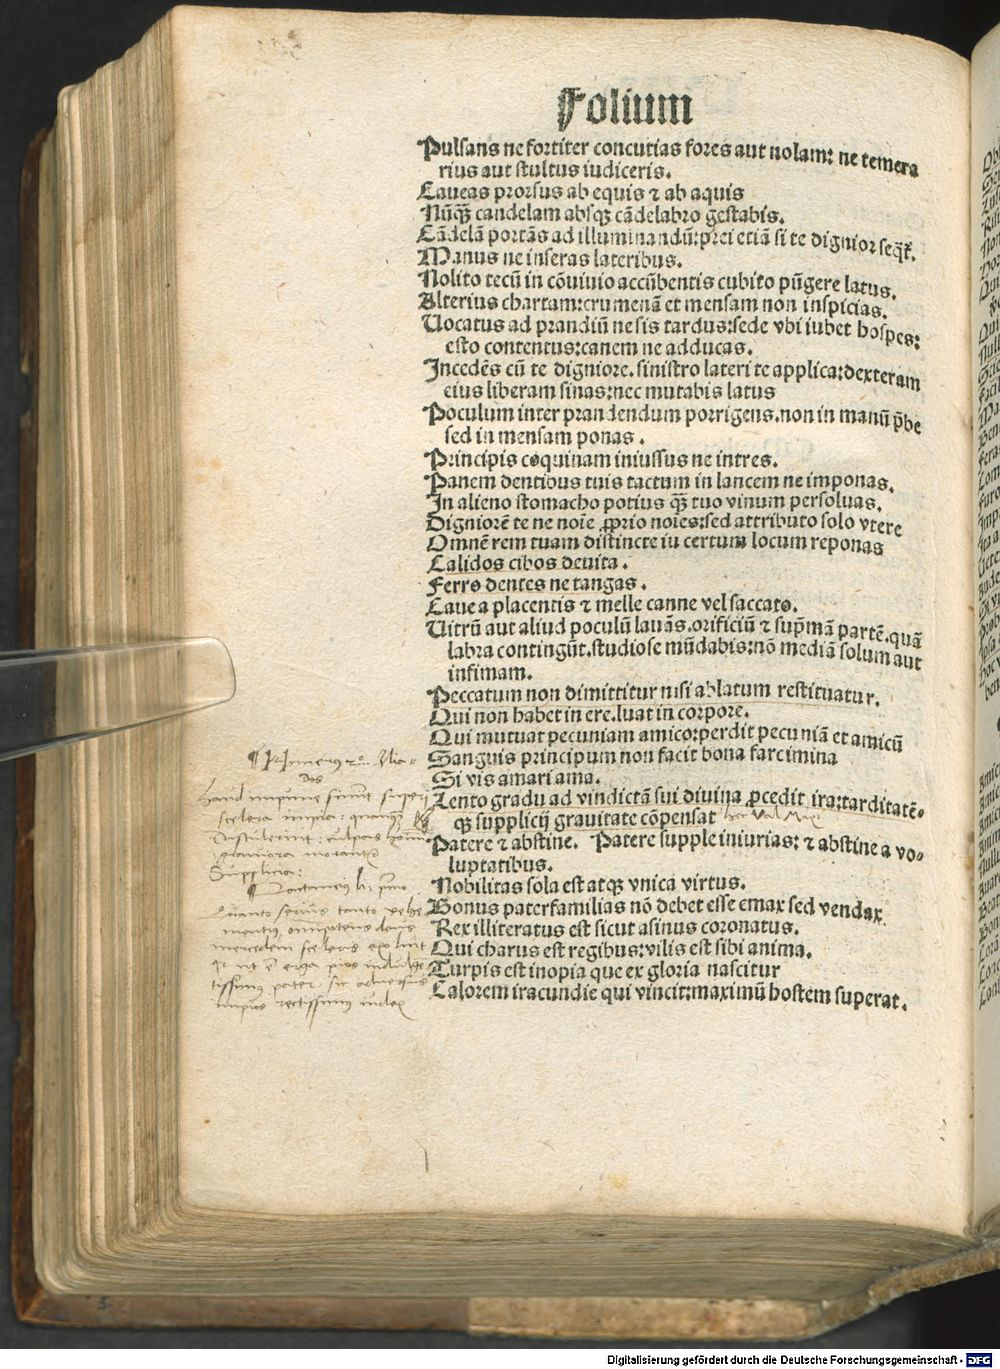 Folium
Pulsans ne fortiter concutias fores aut nolam: ne temera
rius aut stultus iudiceris.
Caueas prorsus ab equis ⁊ ab aquis
Nūqꝫ candelam absqꝫ cādelabro gestabis.
Cādelā portās ad illuminandū: prei etiā si te dignior seqͭ.
Manus ne inseras lateribus.
Nolito tecū in cōuiuio accūbentis cubito pūgere latus.
Alterius chartam: crumenā et mensam non inspicias.
Vocatus ad prandiū ne sis tardus: sede vbi iubet hospes:
esto contentus: canem ne adducas.
Incedēs cū te digniore. sinistro lateri te applica: dexteram
eius liberam sinas: nec mutabis latus
Poculum inter prandendum porrigens. non in manū p̄be
sed in mensam ponas.
Principis coquinam iniussus ne intres.
Panem dentibus tuis tactum in lancem ne imponas.
In alieno stomacho potius qꝫ tuo vinum persoluas.
Digniorē te ne noīe ꝓprio noīes: sed attributo solo vtere
Omnē rem tuam distincte iu certum locum reponas
Calidos cibos deuita.
Ferro dentes ne tangas.
Caue a placentis ⁊ melle canne vel saccato.
Vitrū aut aliud poculū lauās. orificiū ⁊ sup̄mā partē. quā
labra contingūt. studiose mūdabis: nō mediā solum aut
infimam.
Peccatum non dimittitur nisi ablatum restituatur.
Qui non habet in ere. luat in corpore.
Qui mutuat pecuniam amico: perdit pecuniā et amicū
Sanguis principum non facit bona farcimina
Si vis amari ama.
Lento gradu ad vindictā sui diuina ꝓcedit ira: tarditatē-
qꝫ supplicij grauitate cōpensat hec Val Maxi
Patere ⁊ abstine. Patere supple iniurias: ⁊ abstine a vo-
luptatibus.
Nobilitas sola est atqꝫ vnica virtus.
Bonus paterfamilias nō debet esse emax sed vendax
Rex illiteratus est sicut asinus coronatus.
Qui charus est regibus: vilis est sibi anima.
Turpis est inopia que ex gloria nascitur
Calorem iracundie qui vincit: maximū hostem superat.
¶ Homerus Ilia-
dos
Haud impune sinunt superi
scelera impia: quanqꝫ
Distulerint: culpas
grauiora
Supplicia:
¶ Lactancius li. primo
Quanto serius tanto vehe
mentius omnipotens deus
mercedem sceleris
ut erga pios indulge
tissimus pater. sic aduersus
impios rectissimus iudex
Digitalisierung gefördert durch die Deutsche Forschungsgemeinschaft - DFG